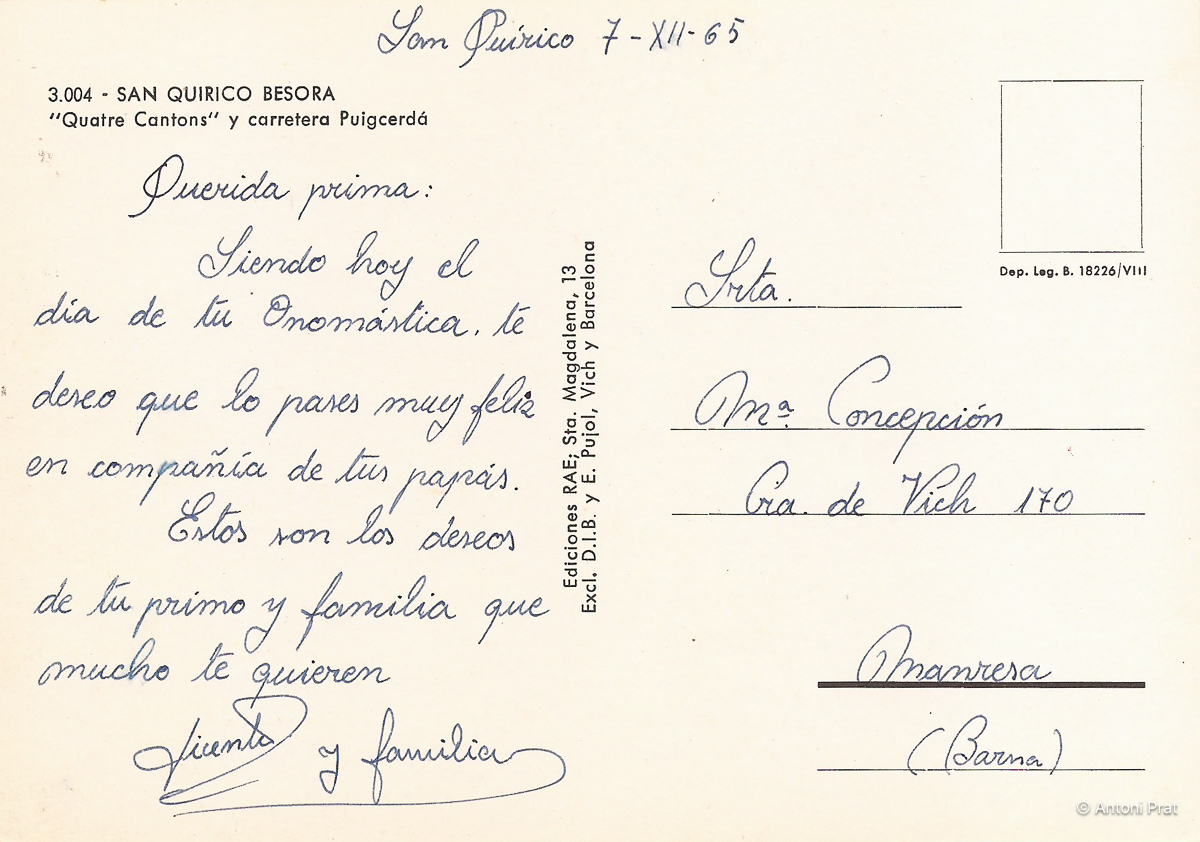 San Quírico 7-XII-65
3.004 - SAN QUIRICO BESORA
"Quatre Cantons" y carretera Puigcerdá
Querida prima:
Siendo hoy el
día de tu Onomástica, te
deseo que lo pases muy feliz
en compañía de tus papás.
Estos son los deseos
de tu primo y familia que
mucho te quieren
Vicente y familia
Ediciones RAE; Sta. Magdalena, 13
Excl. D.I.B. y E. Pujol, Vich y Barcelona
Dep. Leg. B. 18226/VIII
Srta.
Mª. Concepción
Cra. de Vich 170
Manresa
(Barna)
© Antoni Prat